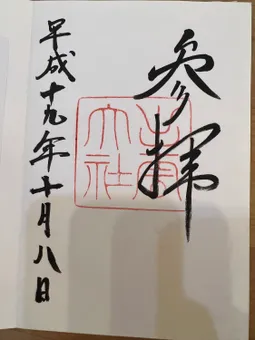 参拝
大社
平成十九年十月八日